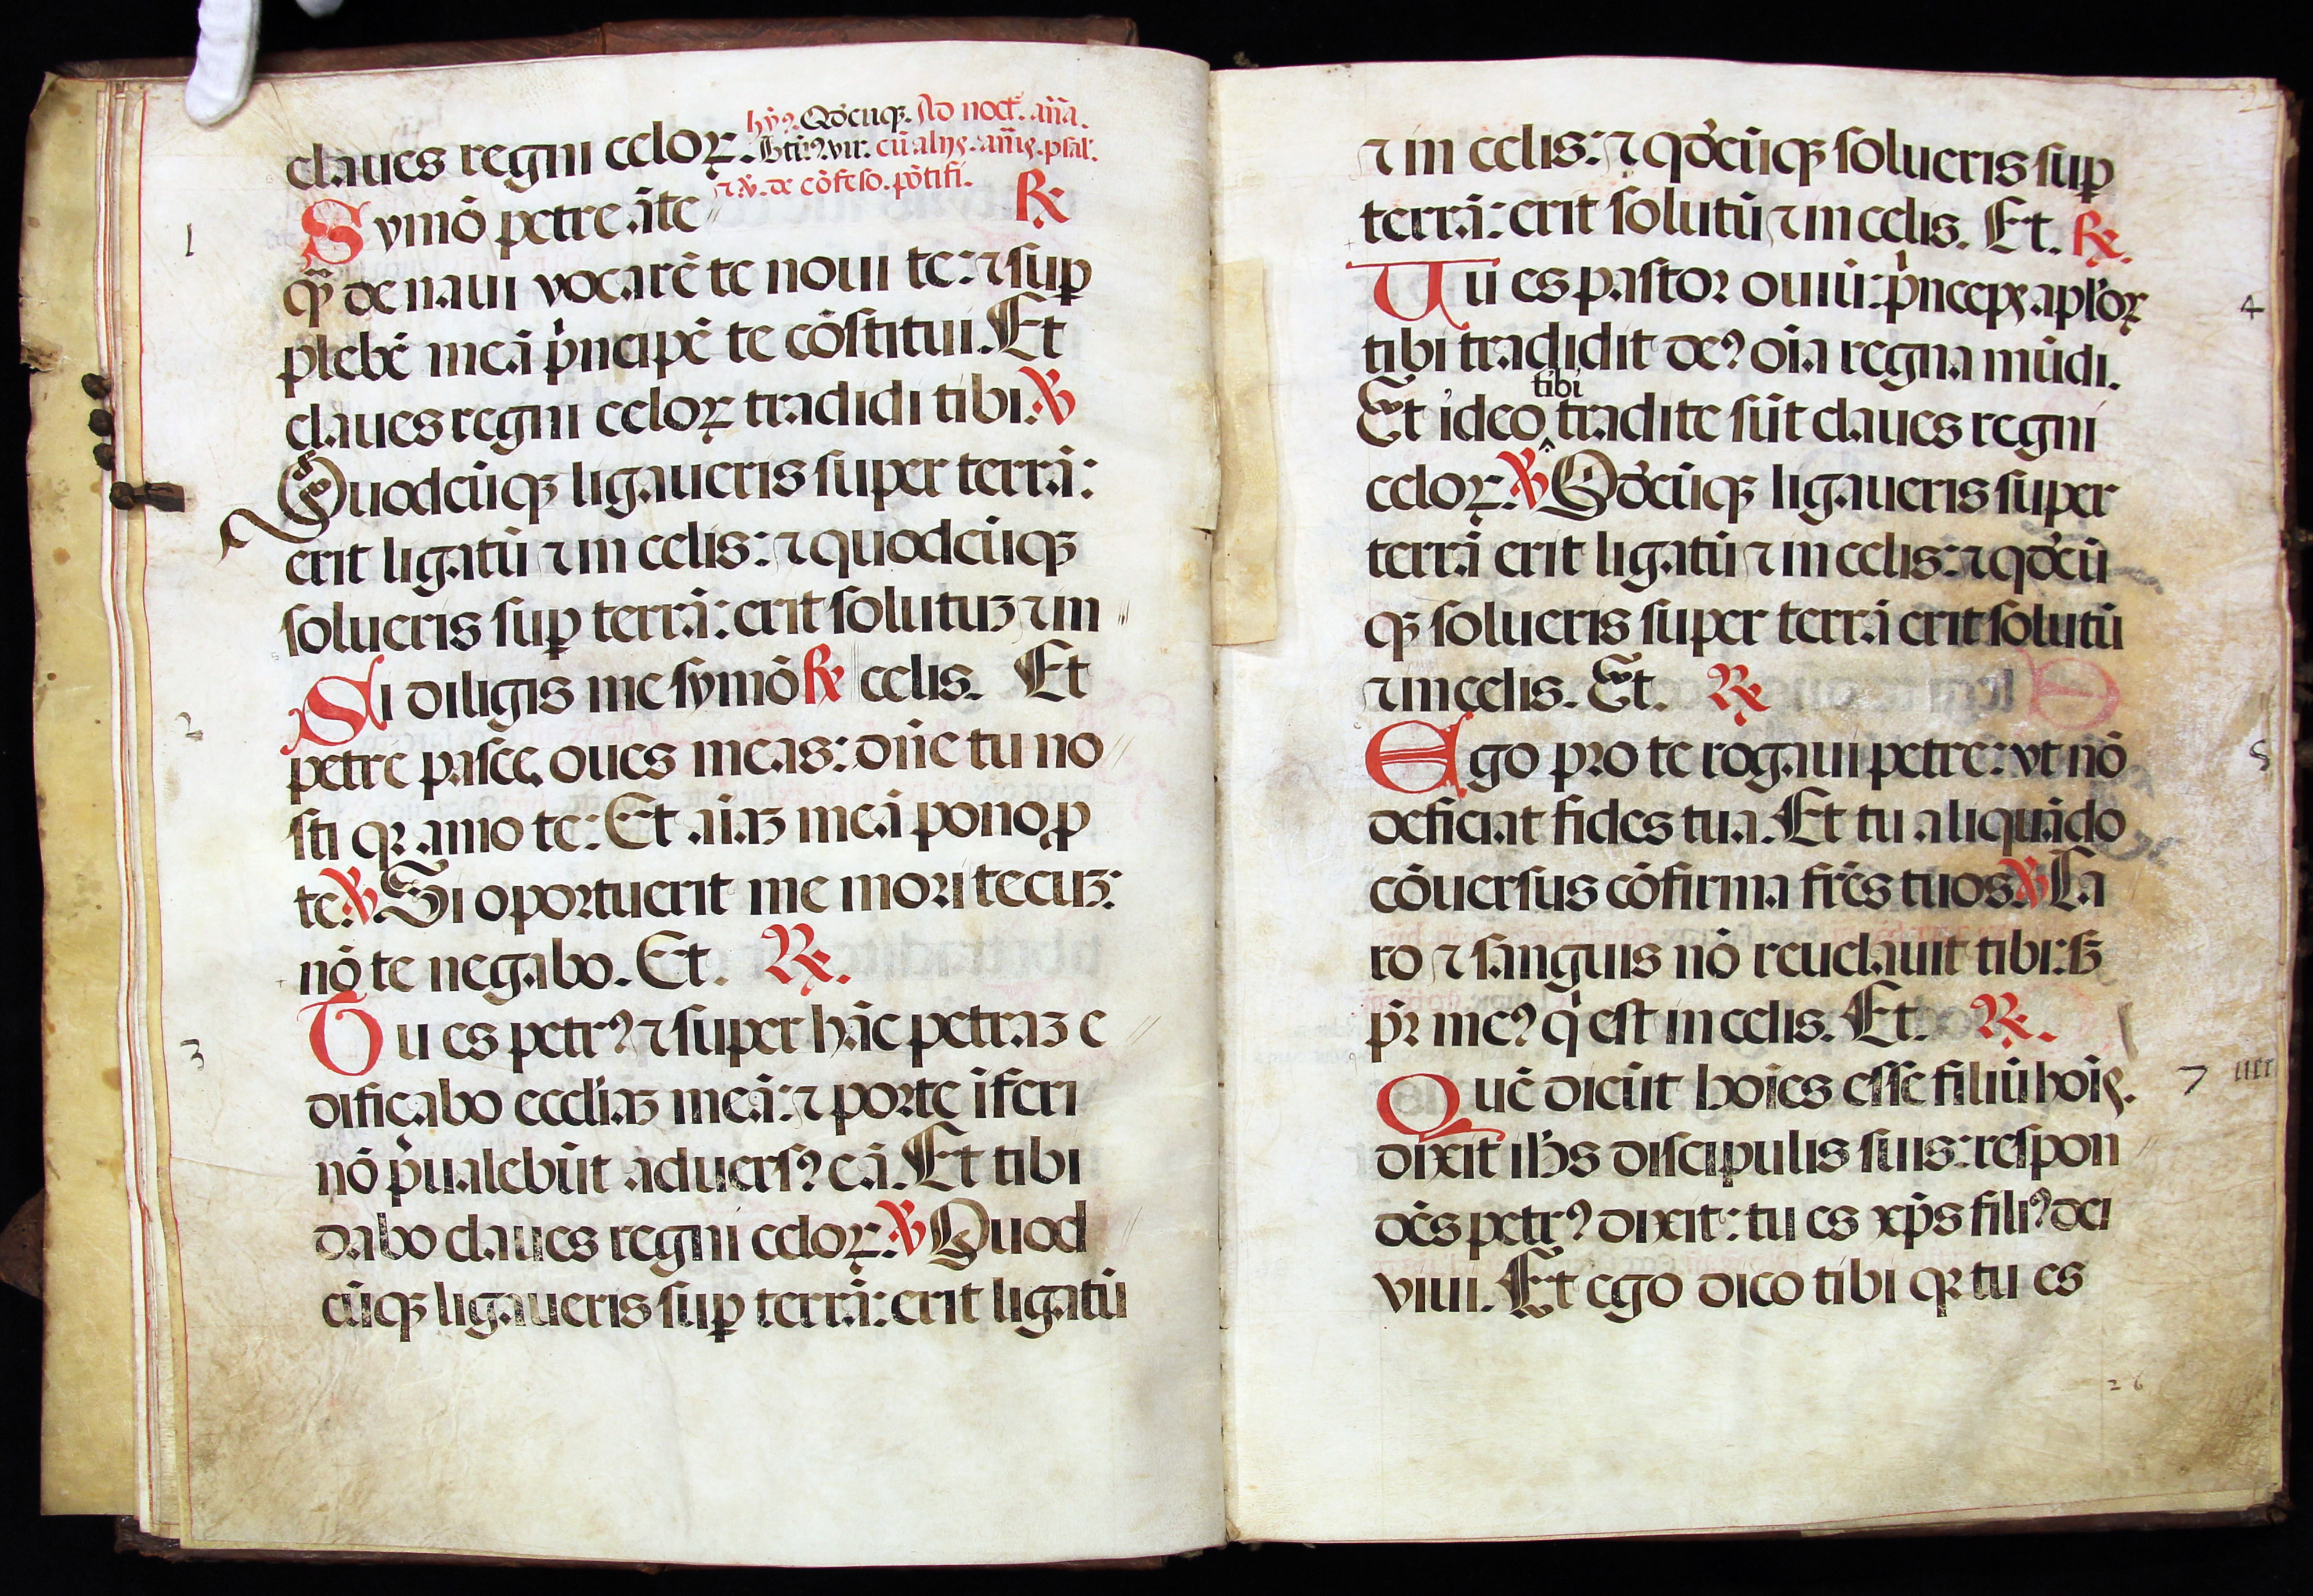 claues regni celoꝝ. hỹꝰ. Qd̛cuqꝫ. Ad noct̛. an̄a.
Btũꝰ. vir. cũ alijs. an̄is. psal̛.
⁊ ꝟ. de cõfeso. põtifi.
Symõ petre ãte ℞
qᷓꝫ de naui vocarẽ te noui te: ⁊ suꝑ
plebẽ meã pͥncipẽ te cõstitui. Et
claues regni celoꝝ tradidi tibi. ℣
Quodcũqꝫ ligaueris super terrã:
erit ligatũ ⁊ in celis: ⁊ quodcũqꝫ
solueris suꝑ terrã: erit solutuꝫ ⁊ in
Si diligis me symõ ℞ celis. Et
petre pasce oues meas: dñe tu no
sti qꝛ amo te: Et aĩaꝫ meã pono ꝓ
te. ℣ Si oportuerit me mori tecuꝫ:
nõ te negabo. Et. ℞.
Tu es petrꝰ ⁊ super hãc petraꝫ e
dificabo eccl̛iaꝫ meã: ⁊ porte ĩferi
nõ p̃ualebũt aduersꝰ eã. Et tibi
dabo claues regni celoꝝ. ℣ Quod
cũqꝫ ligaueris suꝑ terrã: erit ligatũ
1
2
3
⁊ in celis: ⁊ qd̛cũqꝫ solueris suꝑ
terrã: erit solutũ ⁊ in celis. Et. ℞.
Tu es pastor ouiũ: pͥnceps apl̛oꝝ
tibi tradidit deꝰ oĩa regna mũdi.
tibi
Et ideo ‸ tradite sũt claues regni
celoꝝ. ℣ Qd̛cũqꝫ ligaueris super
terrã erit ligatũ ⁊ in celis: ⁊ qd̛cũ
qꝫ solueris super terrã erit solutũ
⁊ in celis. Et. ℞
Ego pro te rogaui petre: vt nõ
deficiat fides tua. Et tu aliquãdo
cõuersus cõfirma fr̃es tuos. ℣ Ca
ro ⁊ sanguis nõ reuelauit tibi: sꝫ
pr̃ meꝰ qͥ est in celis. Et. ℞.
Quẽ dicũt hoĩes esse filiũ hoĩs.
dixit ih̃s discipulis suis: respon
dẽs petrꝰ dixit: tu es xp̃s filiꝰ dei
viui. Et ego dico tibi qꝛ tu es
4
5
7 iiii
26